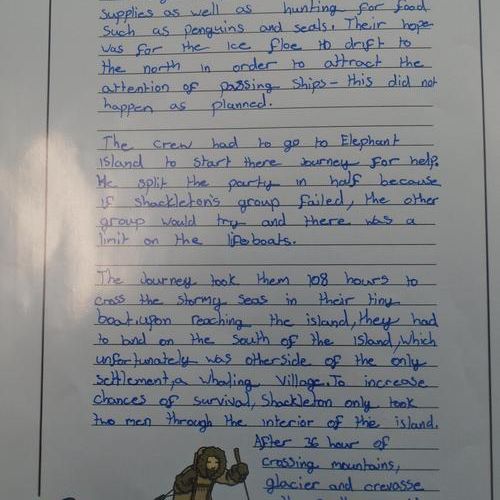 supplies as well as hunting for food
such as penguins and seals. Their hope
was for the ice floe to drift to
the north in order to attract the
attention of passing ships - this did not
happen as planned.
The crew had to go to Elephant
Island to start there Journey for help.
He split the party in half because
if shackleton's group failed, the other
group would try and there was a
limit on the lifeboats.
The Journey took them 108 hours to
cross the stormy seas in their tiny
boat.upon reaching the island, they had
to land on the South of the Island, which
unfortunately was otherside of the only
settlement, a whaling village. To increase
chances of survival, Shackleton only took
two men through the interior of the island.
After 36 hour of
crossing mountains,
glacier and crevasse